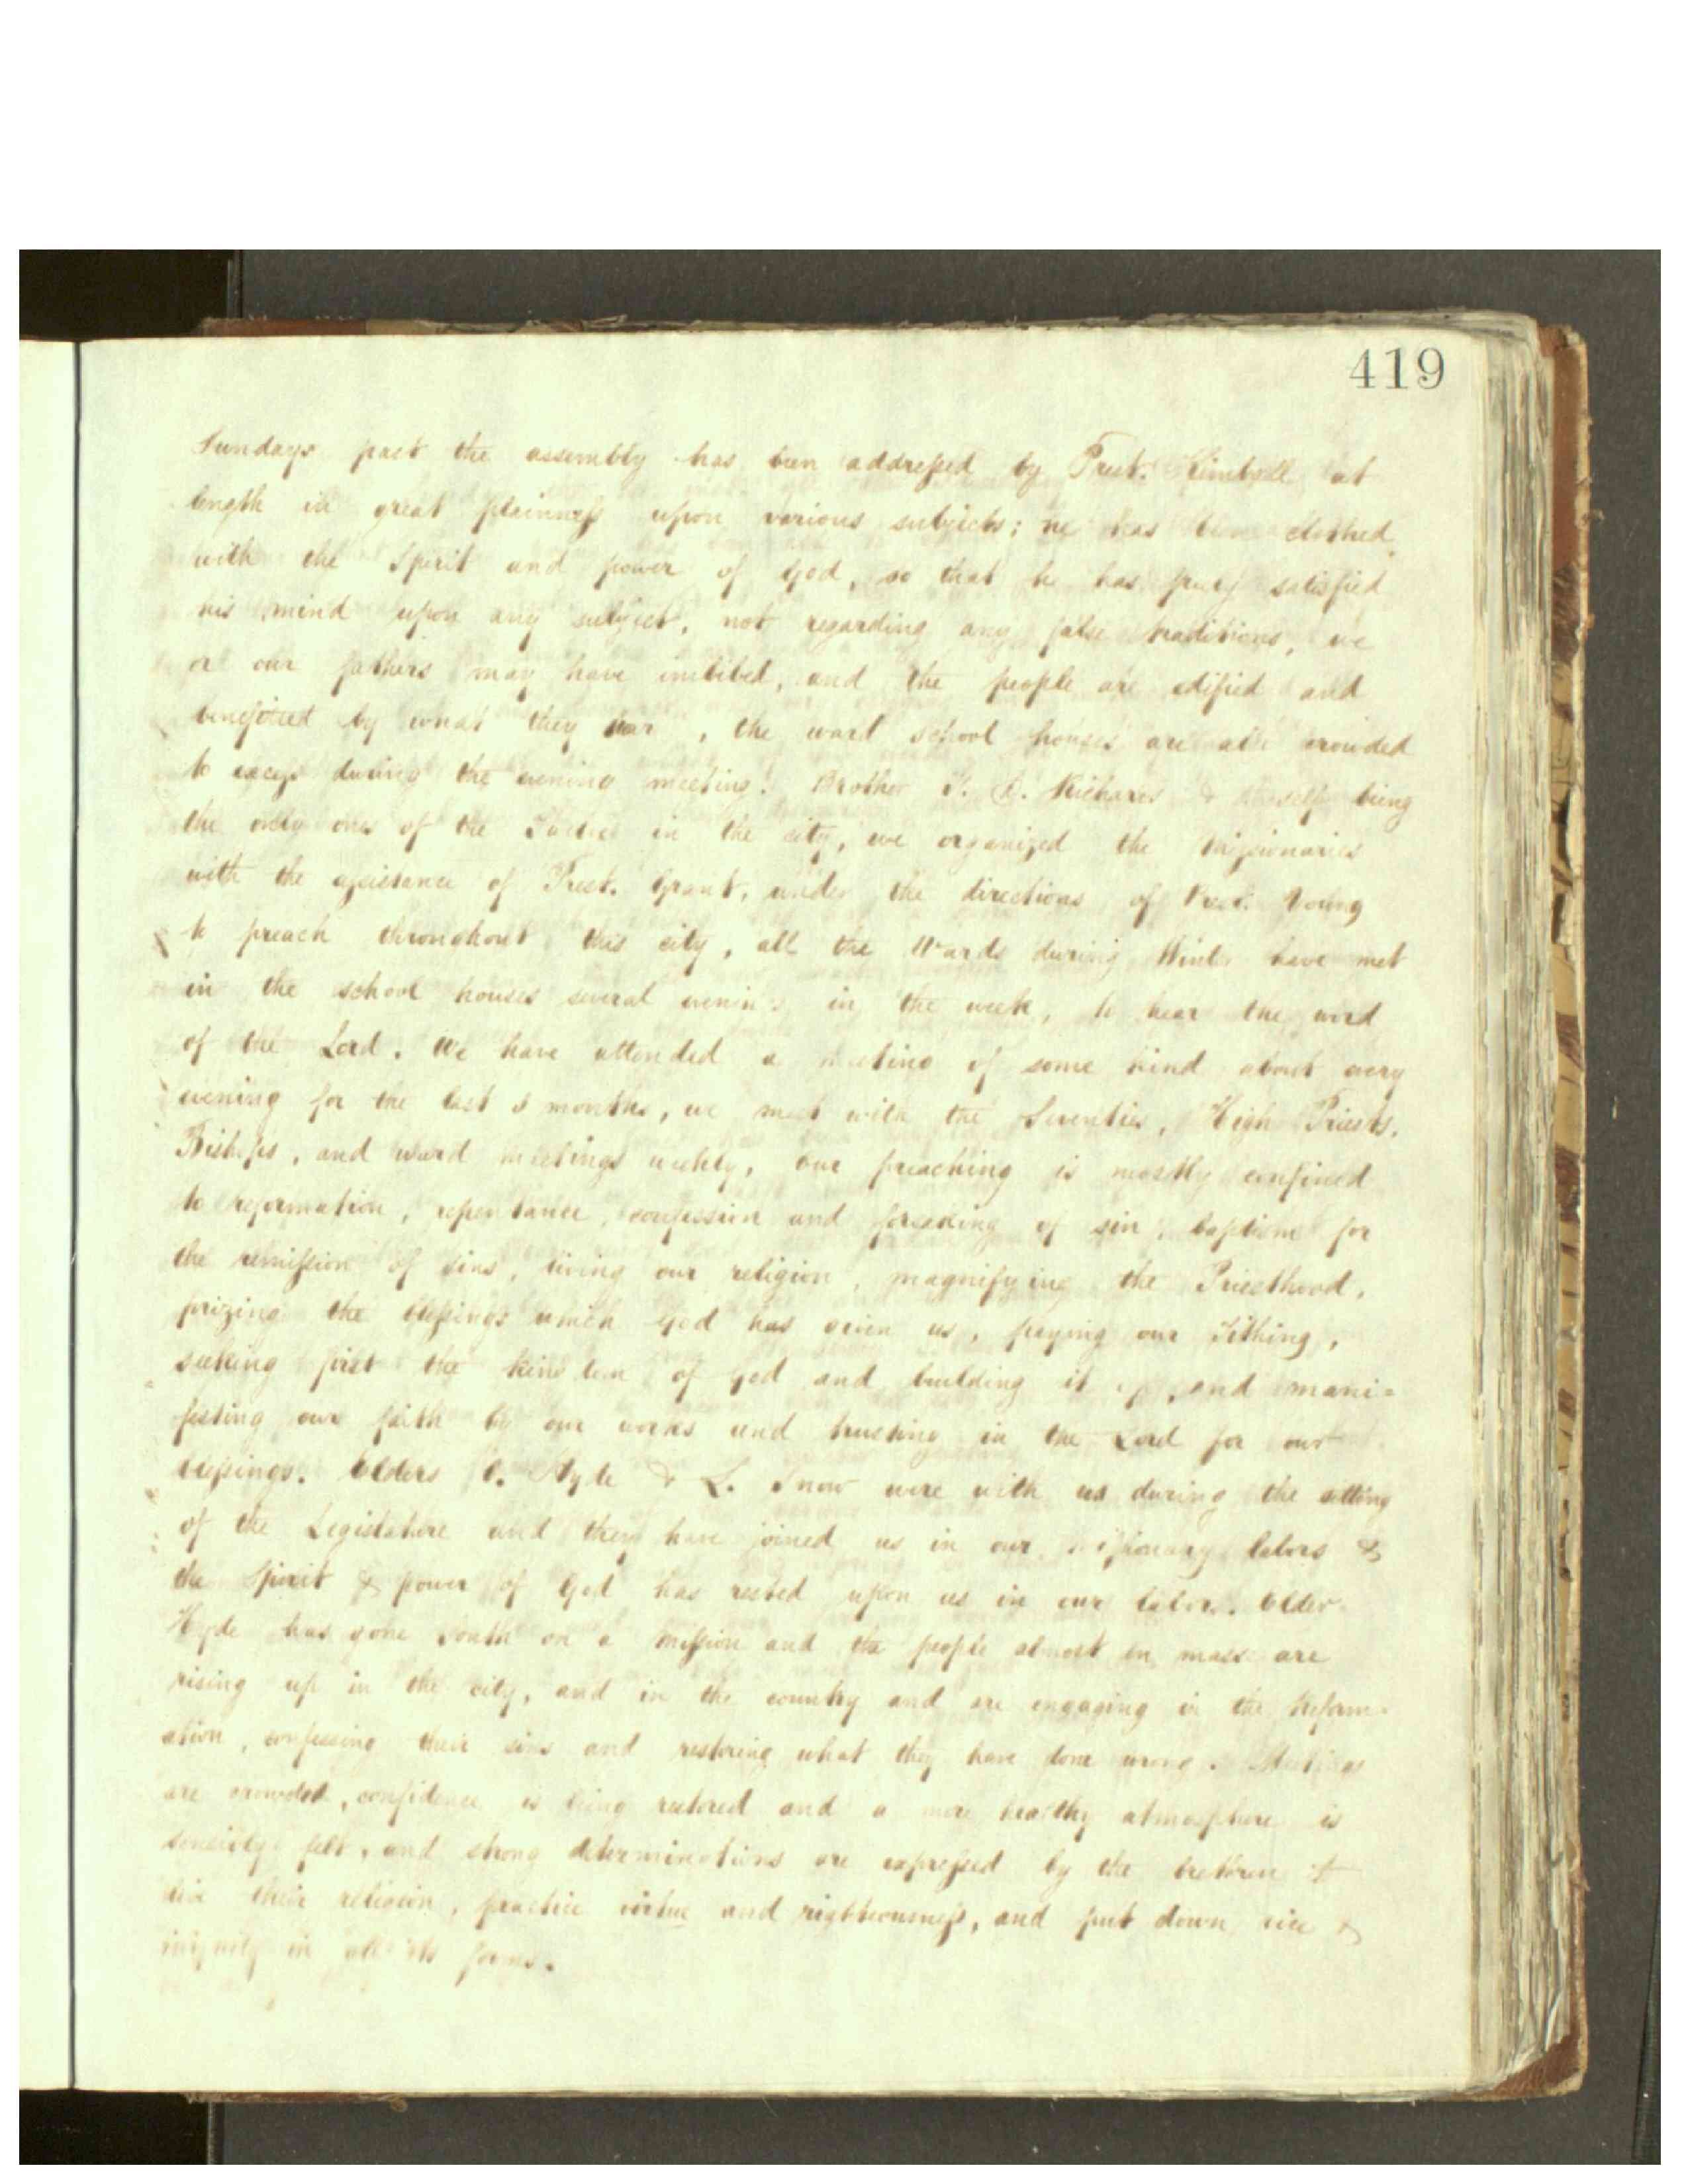 419
Sundays past the assembly has been addressed by Prest. Kimball at
length in great plainness upon various subjects; he has been clothed
with the Spirit and power of God, so that he has freely satisfied
his mind upon any subject, not regarding any false traditions, we
or our fathers may have imbibed, and the people are edified and
benefitted by what they hear, the ward school houses are also crowded
to excess during the evening meeting. Brother F. D. Richards & myself being
the only ones of the Twelve in the city, we organized the Missionaries
with the assistance of Prest. Grant, under the directions of Prest. Young
to preach throughout this city, all the Wards during Winter have met
in the school houses several evenings in the week, to hear the word
of the Lord. We have attended a meeting of some kind about every
evening for the last 3 months, we meet with the Seventies, High Priests,
Bishops, and ward meetings weekly, our preaching is mostly confined
to reformation, repentance, confession and forsaking of sin, baptism for
the remission of sins, living our religion, magnifying the Priesthood,
prizing the blessings which God has given us, paying our Tithing,
seeking first the kingdom of God and building it up, and mani=
festing our faith by our works and trusting in the Lord for our
blessings. Elders O. Hyde & L. Snow were with us during the sitting
of the Legislature and they have joined us in our missionary labors &
the Spirit & power of God has rested upon us in our labors. Elder
Hyde has gone South on a mission and the people almost en mass are
rising up in the city, and in the country and are engaging in the Reform-
ation, confessing their sins and restoring what they have done wrong. Meetings
are crowded, confidence is being restored and a more healthy atmosphere is
sensibly felt, and strong determinations are expressed by the brethren to
live their religion, practice virtue and righteousness, and put down vice &
iniquity in all its forms.